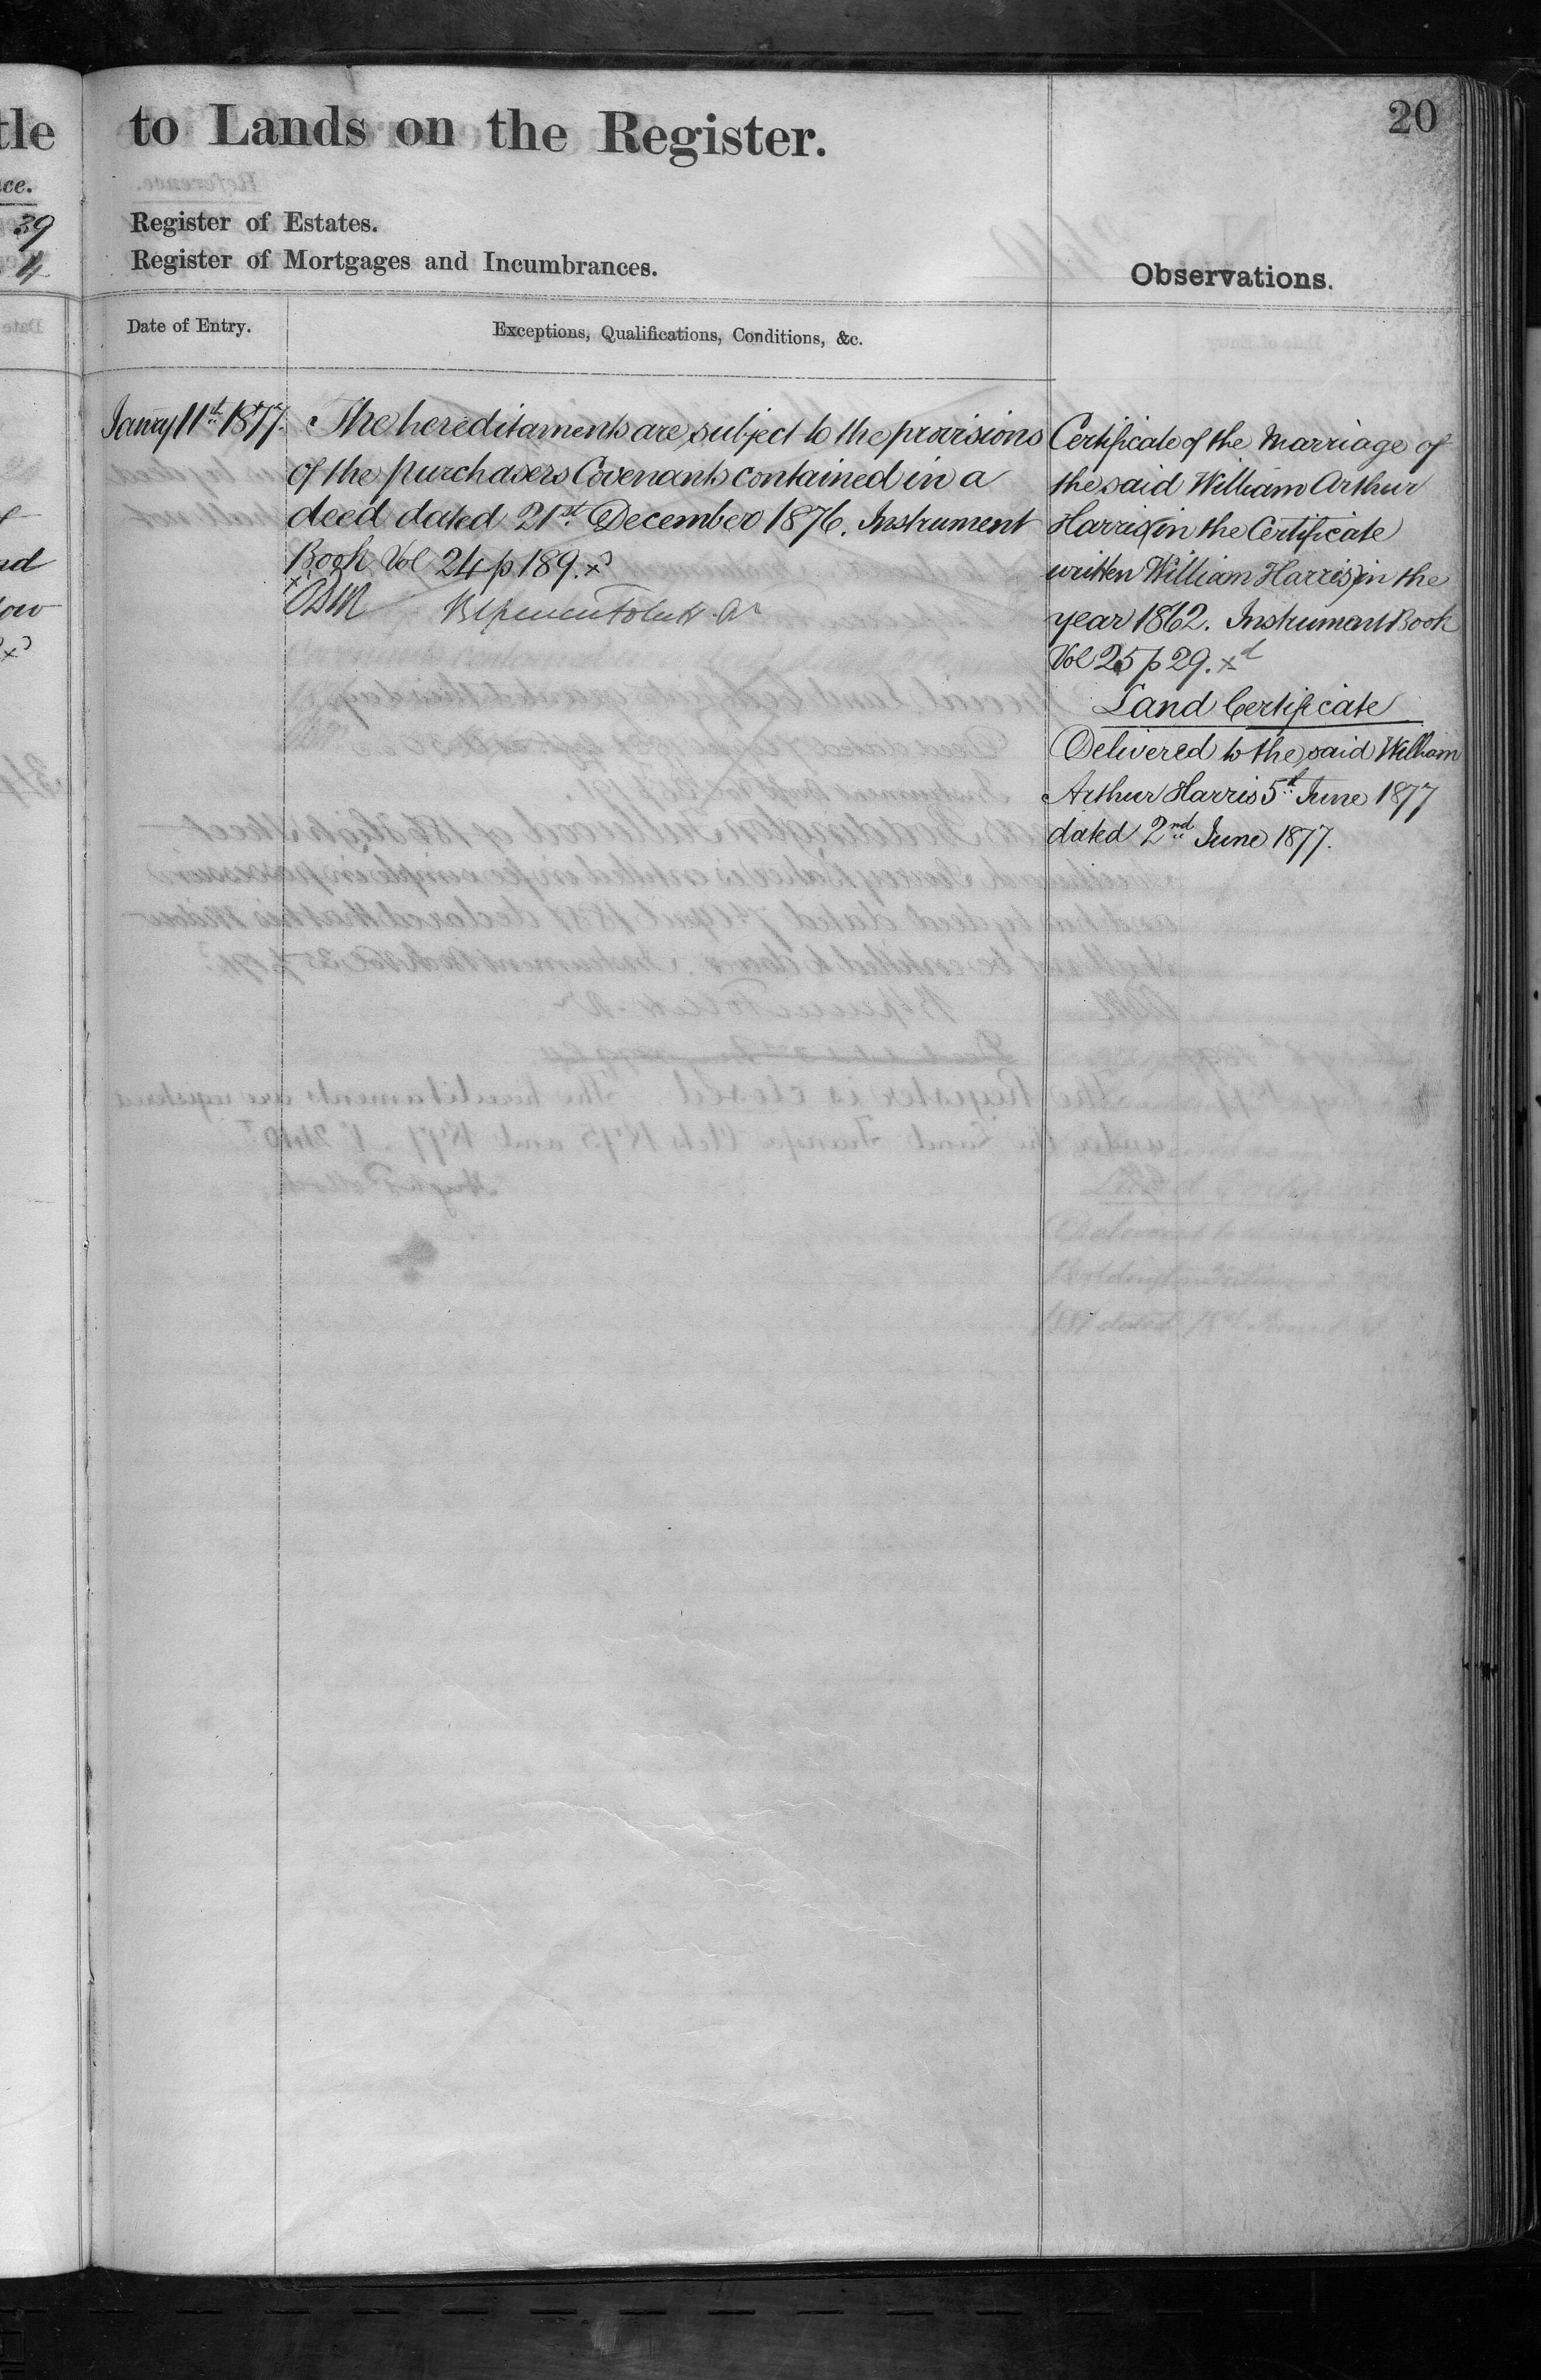 tle
ce.
39
4
to Lands on the Register.
20
Register of Estates.
Register of Mortgages and Incumbrances.
Observations.
Date of Entry.
Exceptions, Qualifications, Conditions, &c.
Janry 11th 1877.
The hereditaments are subject to the provisions
of the purchasers Covenants contained in a
deed dated 21st December 1876. Instrument
Book Vol 24 p 189. xd
Certificate of the Marriage of
the said William Arthur
Harris (in the Certificate
written William Harris) in the
year 1862. Instrument Book
Vol 25 p 29. xd
Land Certificate
Delivered to the said William
Arthur Harris 5th June 1877
dated 2nd June 1877.